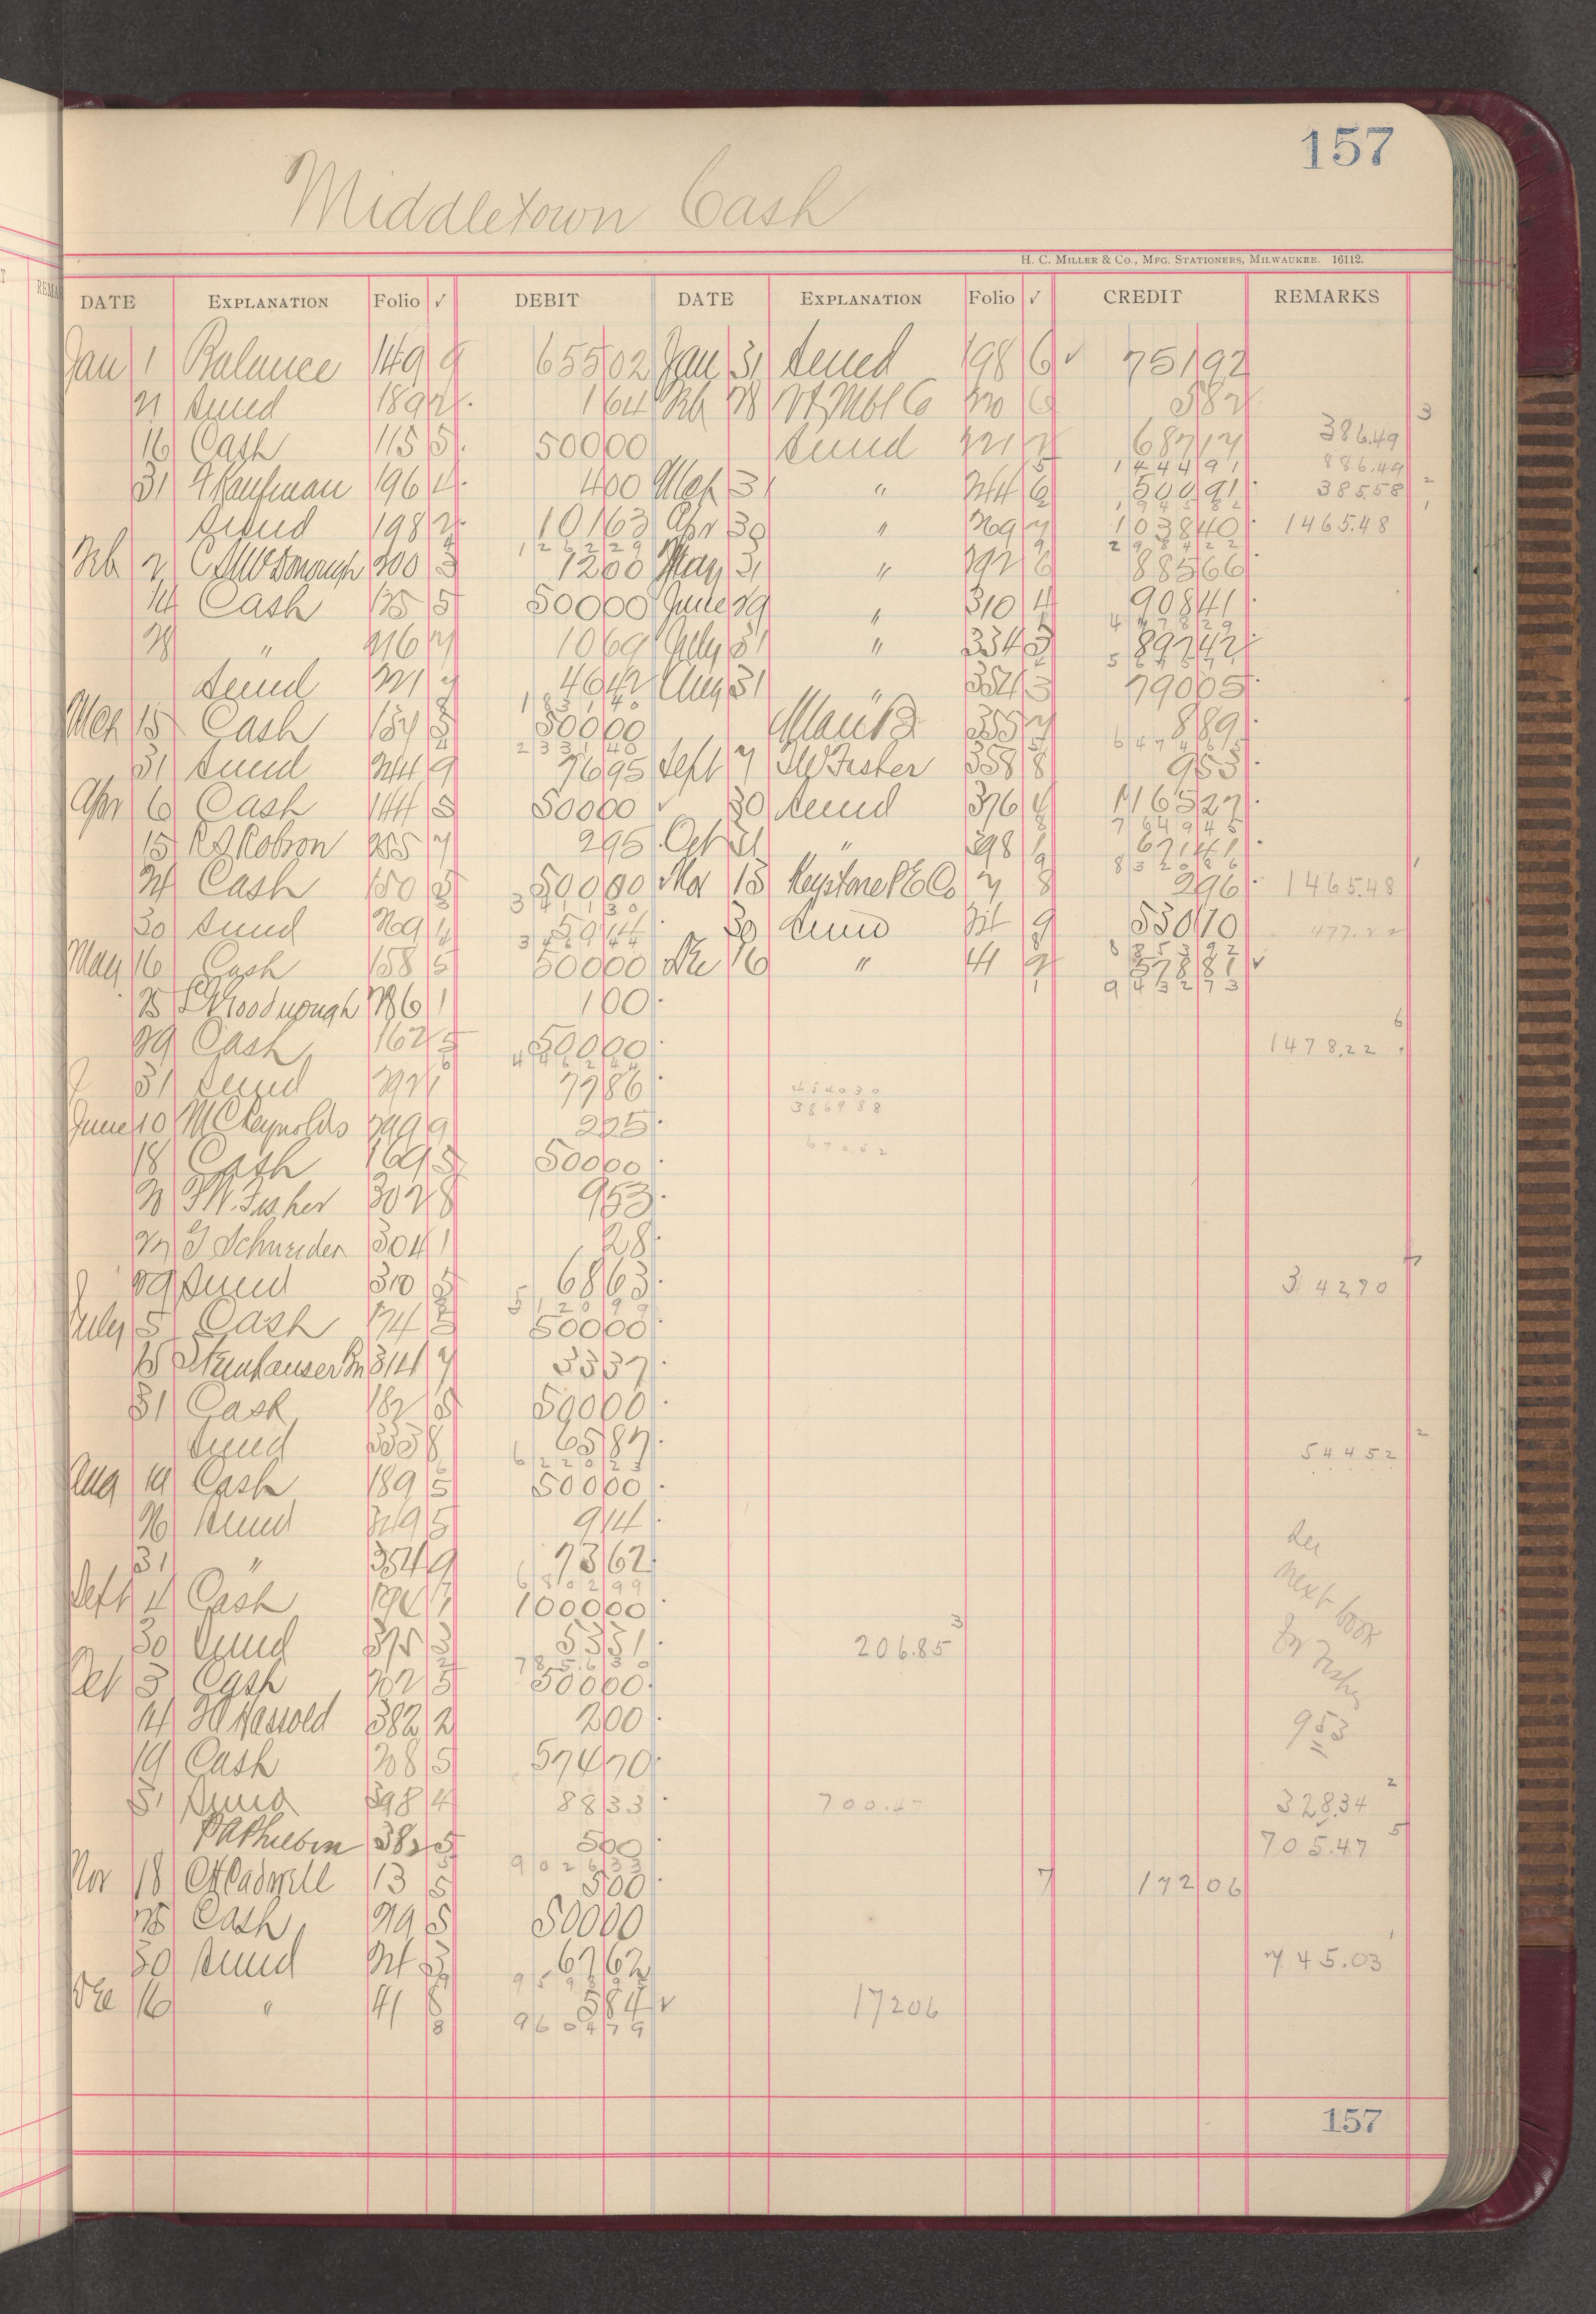 157
Middletown Cash
H. C. Miller & Co., Mfg. Stationers, Milwaukee. 16112.
DATE Explanation Folio √ DEBIT DATE Explanation Folio √ CREDIT REMARKS
Jan 1 Balance 149 9 65502 Jan 31 Sund 198 6 √ 75192
21 Sund 189 2 164 Feb 28 582
3
16 Cash 115 5 50000 Sund 221 2 68717 386.49
144491 886.49
31 F Kaufman 196 4 400 Mch 31 " 244 6 50091 385.58 2
194582 1
Sund 198 2 10163 Apr 30 " 269 7 103840 1465.48
126229 298422
Feb 2 C S McDonough 200 3 1200 May 31 " 292 6 88566
14 Cash 125 5 50000 June 29 " 310 4 90841
477829
28 " 216 7 1069 July 31 " 334 3 89742
567571
Sund 221 7 4642 Aug 31 " 354 3 79005
183140
Mch 15 Cash 134 5 50000 355 7 889
233140 647465
31 Sund 244 9 7695 Sept 7 F W Fisher 358 8 953
Apr 6 Cash 144 5 50000 √ 30 Sund 376 4 116527
764945
15 R S Robson 255 7 295 Oct 31 " 398 1 67141
832086
24 Cash 150 5 50000 Nov 13 Keystone P E Co 7 8 296 1465.48
341130
30 Sund 269 4 5914 30 Sund 24 9 53010 477.22
347044 885392
May 16 Cash 158 5 50000 Dec 16 " 41 2 57881 √
943273
25 L Woodnough 286 1 100
29 Cash 162 5 50000 1478.22 6
31 Sund 292 1 7786
454030
386988
June 10 M C Reynolds 299 9 225
67042
18 Cash 169 5 50000
20 F W. Fisher 302 8 953
27 G Schneider 304 1 28
29 Sund 310 5 6863 342.70 7
512099
July 5 Cash 174 5 50000
15 Steinhauser Bn 314 7 3337
31 Cash 182 5 50000
Sund 333 8 6587 54452 2
622023
Aug 14 Cash 189 5 50000
26 Sund 349 5 914
31 " 354 9 7362
680299
See
next book
for Fisher
Sept 4 Cash 194 1 100000
30 Sund 375 3 5331 206.85 3
785630
Oct 3 Cash 202 5 50000
14 382 2 200 953
19 Cash 208 5 57470
31 Sund 398 4 8833 700.47 328.34 2
P A Philbin 382 5 500 705.47 5
902633
Nov 18 C H Cadwell 13 5 500 7 17206
25 Cash 219 5 50000
30 Sund 24 3 6762 745.03 1
Dec 16 " 41 8 584 √ 17206
960479 8
157